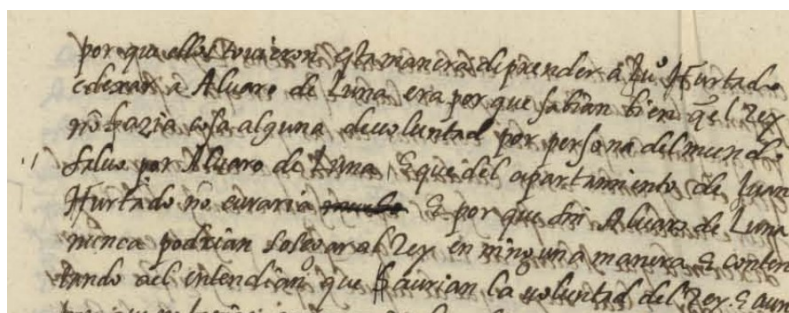 por que ellos tovieron esta manera de prender a Juº Hurtado
e dexar a Alvaro de Luna era por que sabian bien q̃ el Rey
no hazia cosa alguna de voluntad por persona del mundo
salvo por Alvaro de Luna & que del apartamiento de Juan
Hurtado no curaria & por que sin Alvaro de Luna
nunca podrian sosegar al Rey en ninguna manera & conten
tando a el intendian que aurian la voluntad del Rey. & aun